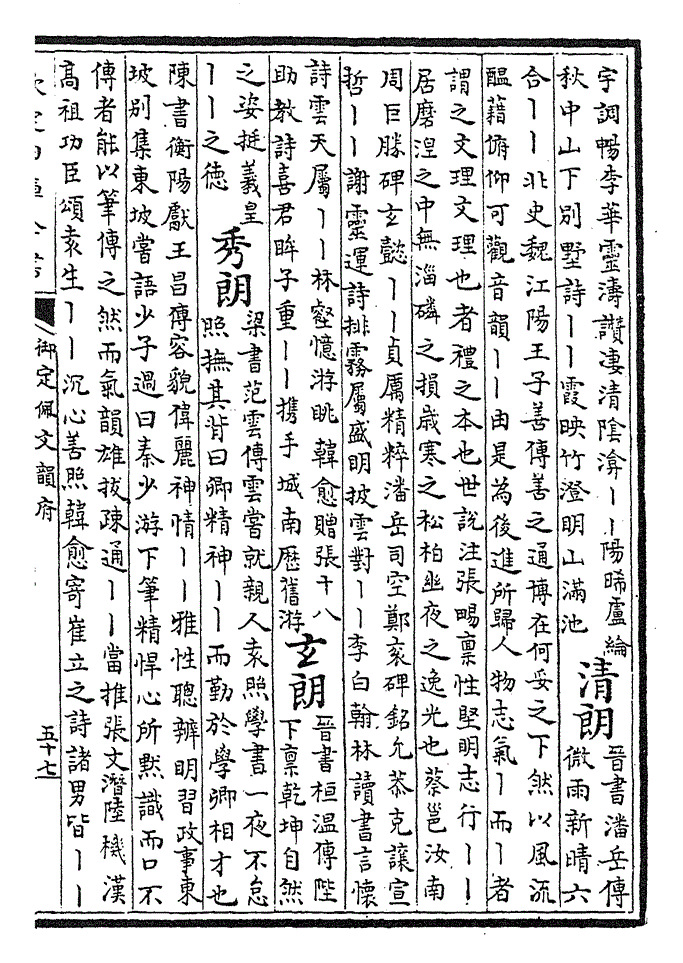 宇調暢李華靈濤讚淒清陰渰丨丨陽晞盧綸
秋中山下別墅詩丨丨霞映竹澄明山滿池
清朗
晉書潘岳傳
微雨新晴六
合丨丨北史魏江陽王子善傳善之通博在何妥之下然以風流
醞藉俯仰可觀音韻丨丨由是為後進所歸人物志氣丨而丨者
謂之文理文理也者禮之本也世說注張暢禀性堅明志行丨丨
居磨涅之中無淄磷之損歲寒之松柏幽夜之逸光也蔡邕汝南
周巨勝碑玄懿丨丨貞厲精粹潘岳司空鄭袤碑銘允恭克讓宣
哲丨丨謝靈運詩排霧屬盛明披雲對丨丨李白翰林讀書言懷
詩雲天屬丨丨林壑憶游眺韓愈贈張十八
助教詩喜君眸子重丨丨携手城南歷舊游
玄朗
晉書桓溫傳陛
下禀乾坤自然
之姿挺羲皇
丨丨之徳
秀朗
梁書范雲傳雲嘗就親人袁照學書一夜不怠
照撫其背曰卿精神丨丨而勤於學卿相才也
陳書衡陽獻王昌傳容貌偉麗神情丨丨雅性聰辨明習政事東
坡別集東坡嘗語少子過曰秦少游下筆精悍心所默識而口不
傳者能以筆傳之然而氣韻雄拔疎通丨丨當推張文潛陸機漢
高祖功臣頌袁生丨丨沉心善照韓愈寄崔立之詩諸男皆丨丨
御定佩文韻府
五十七